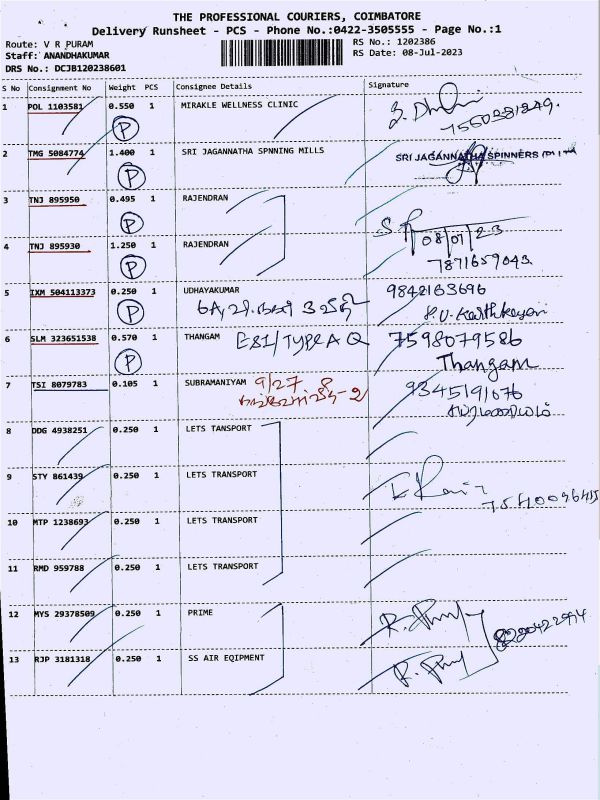 THE PROFESSIONAL COURIERS, COIMBATORE
Delivery Runsheet - PCS - Phone No.:0422-3505555 - Page No.:1
Route: V R PURAM
RS No.: 1202386
Staff: ANANDHAKUMAR
RS Date: 08-Jul-2023
DRS No.: DCJB120238601
S No Consignment No Weight PCS Consignee Details Signature
1 POL 1103581 0.550 1 MIRAKLE WELLNESS CLINIC
P
7550281249.
2 TMG 5084774 1.400 1 SRI JAGANNATHA SPNNING MILLS
SRI JAGANNATHA SPINNERS (P)
P
3 TNJ 895950 0.495 1 RAJENDRAN
P
08/07/23
4 TNJ 895930 1.250 1 RAJENDRAN
P
7871659043
5 IXM 504113373 0.250 1 UDHAYAKUMAR
9842163696
P
6 SLM 323651538 0.570 1 THANGAM ESI/TYPE A Q 7598079586
P
Thangam
7 TSI 8079783 0.105 1 SUBRAMANIYAM 9/27 9345191076
8 DDG 4938251 0.250 1 LETS TANSPORT
9 STY 861439 0.250 1 LETS TRANSPORT
10 MTP 1238693 0.250 1 LETS TRANSPORT
11 RMD 959788 0.250 1 LETS TRANSPORT
12 MYS 29378509 0.250 1 PRIME
13 RJP 3181318 0.250 1 SS AIR EQIPMENT